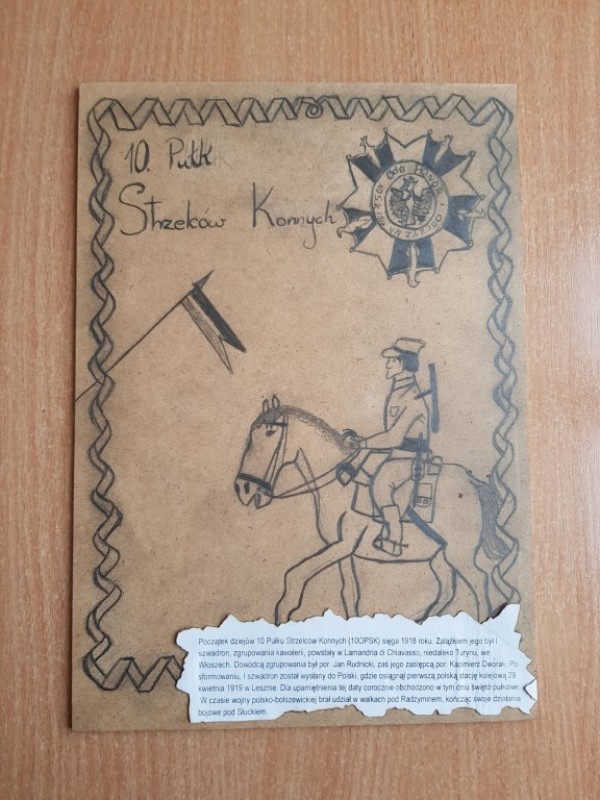 10. Pułk
Strzelców Konnych
BÓG HONOR I OJCZYZNA
Początek dziejów 10 Pułku Strzelców Konnych (10OPSK) sięga 1918 roku. Zalążkiem jego był I
szwadron, zgrupowania kawalerii, powstały w Lamandria di Chiavasso, niedaleko Turynu, we
Włoszech. Dowódcą zgrupowania był por. Jan Rudnicki, zaś jego zastępcą por. Kazimierz Dworak. Po
sformowaniu, I szwadron został wysłany do Polski, gdzie osiągnął pierwszą polską stację kolejową 29
kwietnia 1919 w Lesznie. Dla upamiętnienia tej daty corocznie obchodzono w tym dniu święto pułkowe.
W czasie wojny polsko-bolszewickiej brał udział w walkach pod Radzyminem, kończąc swoje działania
bojowe pod Słuckiem.